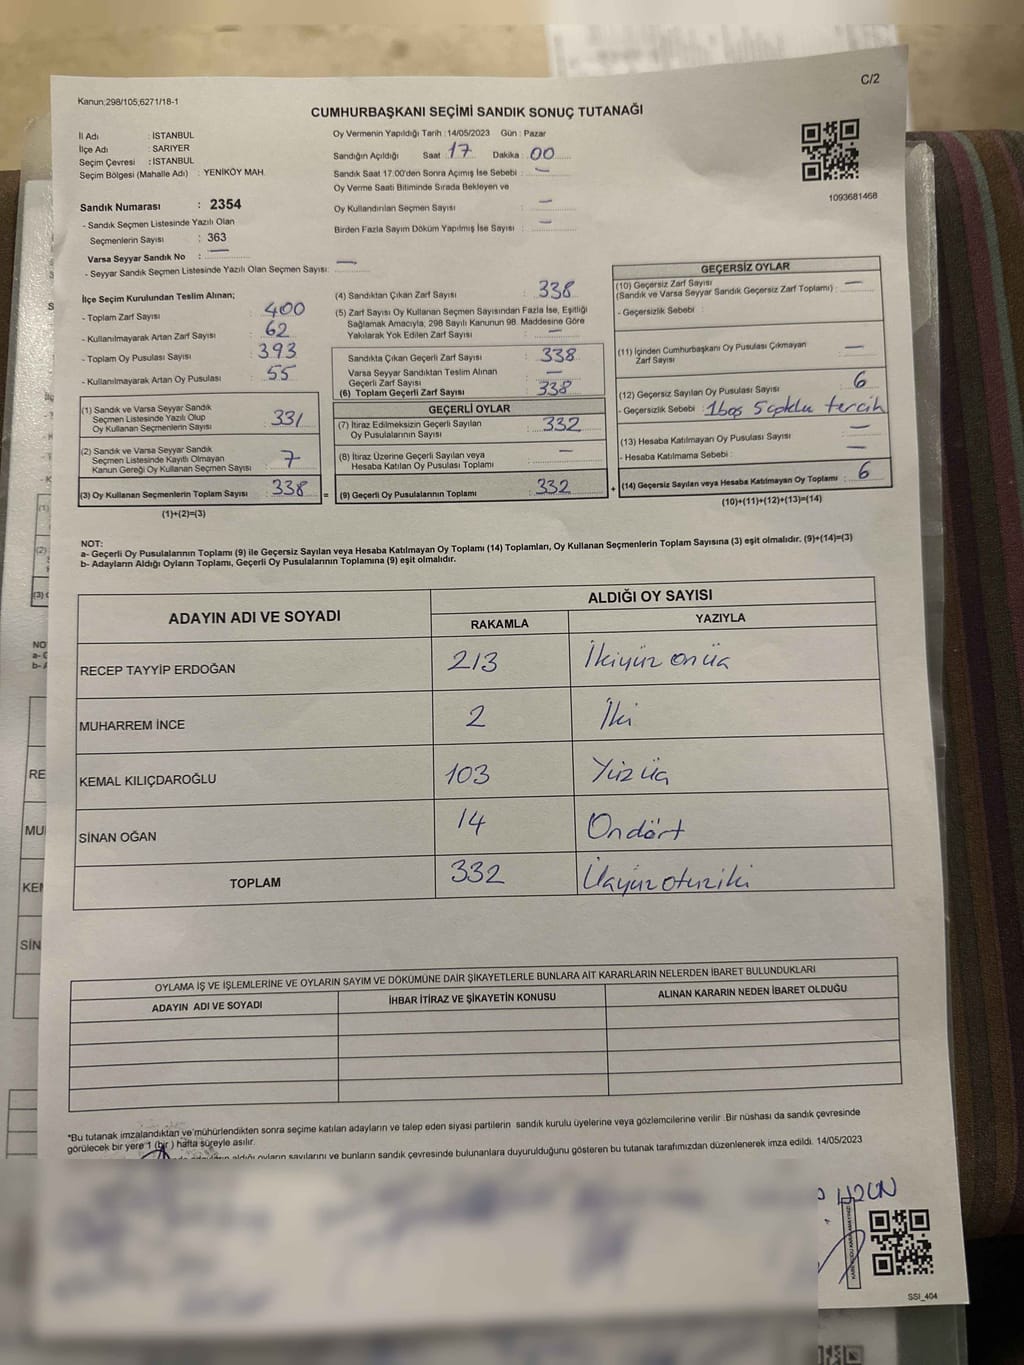 C/2
Kanun:298/105;6271/18-1
CUMHURBAŞKANI SEÇİMİ SANDIK SONUÇ TUTANAĞI
İl Adı : İSTANBUL
İlçe Adı : SARIYER
Seçim Çevresi : İSTANBUL
Seçim Bölgesi (Mahalle Adı) : YENİKÖY MAH.
Oy Vermenin Yapıldığı Tarih : 14/05/2023 Gün : Pazar
Sandığın Açıldığı Saat : 17 Dakika : 00
Sandık Saat 17:00'den Sonra Açımış İse Sebebi : —
Oy Verme Saati Bitiminde Sırada Bekleyen ve
Oy Kullandırılan Seçmen Sayısı : —
Birden Fazla Sayım Döküm Yapılmış İse Sayısı : —
1093681468
Sandık Numarası : 2354
- Sandık Seçmen Listesinde Yazılı Olan
Seçmenlerin Sayısı : 363
Varsa Seyyar Sandık No : —
- Seyyar Sandık Seçmen Listesinde Yazılı Olan Seçmen Sayısı: —
İlçe Seçim Kurulundan Teslim Alınan;
- Toplam Zarf Sayısı : 400
- Kullanılmayarak Artan Zarf Sayısı : 62
- Toplam Oy Pusulası Sayısı : 393
- Kullanılmayarak Artan Oy Pusulası : 55
(1) Sandık ve Varsa Seyyar Sandık
Seçmen Listesinde Yazılı Olup
Oy Kullanan Seçmenlerin Sayısı : 331
(2) Sandık ve Varsa Seyyar Sandık
Seçmen Listesinde Kayıtlı Olmayan
Kanun Gereği Oy Kullanan Seçmen Sayısı : 7
(3) Oy Kullanan Seçmenlerin Toplam Sayısı : 338 =
(1)+(2)=(3)
(4) Sandıktan Çıkan Zarf Sayısı : 338
(5) Zarf Sayısı Oy Kullanan Seçmen Sayısından Fazla İse, Eşitliği
Sağlamak Amacıyla; 298 Sayılı Kanunun 98. Maddesine Göre
Yakılarak Yok Edilen Zarf Sayısı : —
Sandıkta Çıkan Geçerli Zarf Sayısı : 338
Varsa Seyyar Sandıktan Teslim Alınan
Geçerli Zarf Sayısı : —
(6) Toplam Geçerli Zarf Sayısı : 338
GEÇERLİ OYLAR
(7) İtiraz Edilmeksizin Geçerli Sayılan
Oy Pusulalarının Sayısı : 332
(8) İtiraz Üzerine Geçerli Sayılan veya
Hesaba Katılan Oy Pusulası Toplamı : —
(9) Geçerli Oy Pusulalarının Toplamı : 332 +
GEÇERSİZ OYLAR
(10) Geçersiz Zarf Sayısı : —
(Sandık ve Varsa Seyyar Sandık Geçersiz Zarf Toplamı)
- Geçersizlik Sebebi :
(11) İçinden Cumhurbaşkanı Oy Pusulası Çıkmayan
Zarf Sayısı : —
(12) Geçersiz Sayılan Oy Pusulası Sayısı : 6
- Geçersizlik Sebebi : 1boş 5çoklu tercih
(13) Hesaba Katılmayan Oy Pusulası Sayısı : —
- Hesaba Katılmama Sebebi : —
(14) Geçersiz Sayılan veya Hesaba Katılmayan Oy Toplamı : 6
(10)+(11)+(12)+(13)=(14)
NOT:
a- Geçerli Oy Pusulalarının Toplamı (9) ile Geçersiz Sayılan veya Hesaba Katılmayan Oy Toplamı (14) Toplamları, Oy Kullanan Seçmenlerin Toplam Sayısına (3) eşit olmalıdır. (9)+(14)=(3)
b- Adayların Aldığı Oyların Toplamı, Geçerli Oy Pusulalarının Toplamına (9) eşit olmalıdır.
ADAYIN ADI VE SOYADI
ALDIĞI OY SAYISI
RAKAMLA YAZIYLA
RECEP TAYYİP ERDOĞAN 213 İkiyüz onüç
MUHARREM İNCE 2 İki
KEMAL KILIÇDAROĞLU 103 Yüz üç
SİNAN OĞAN 14 Ondört
TOPLAM 332 Üçyüzotuziki
OYLAMA İŞ VE İŞLEMLERİNE VE OYLARIN SAYIM VE DÖKÜMÜNE DAİR ŞİKAYETLERLE BUNLARA AİT KARARLARIN NELERDEN İBARET BULUNDUKLARI
ADAYIN ADI VE SOYADI İHBAR İTİRAZ VE ŞİKAYETİN KONUSU ALINAN KARARIN NEDEN İBARET OLDUĞU
*Bu tutanak imzalandıktan ve mühürlendikten sonra seçime katılan adayların ve talep eden siyasi partilerin sandık kurulu üyelerine veya gözlemcilerine verilir .Bir nüshası da sandık çevresinde
görülecek bir yere 1 (bir ) hafta süreyle asılır.
aldığı oyların sayılarını ve bunların sandık çevresinde bulunanlara duyurulduğunu gösteren bu tutanak tarafımızdan düzenlenerek imza edildi. 14/05/2023
SSI_404